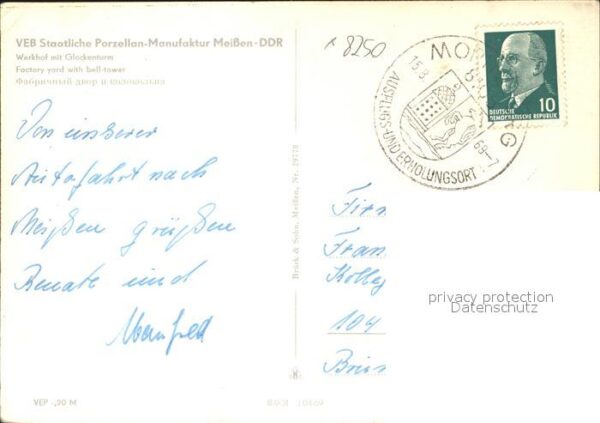 VEB Staatliche Porzellan-Manufaktur Meißen · DDR
Werkhof mit Glockenturm
Factory yard with bell-tower
Фабричный двор и колокольня
8250
MORITZBURG
15.8.
69-7
AUSFLUGS- UND ERHOLUNGSORT
DEUTSCHE
DEMOKRATISCHE REPUBLIK
10
Von unserer
Autofahrt nach
Meißen grüßen
Renate und
Manfred
Brück & Sohn, Meißen, Nr. 29778
Fran
Kolleg
104
privacy protection
Datenschutz
VEP -,20 M